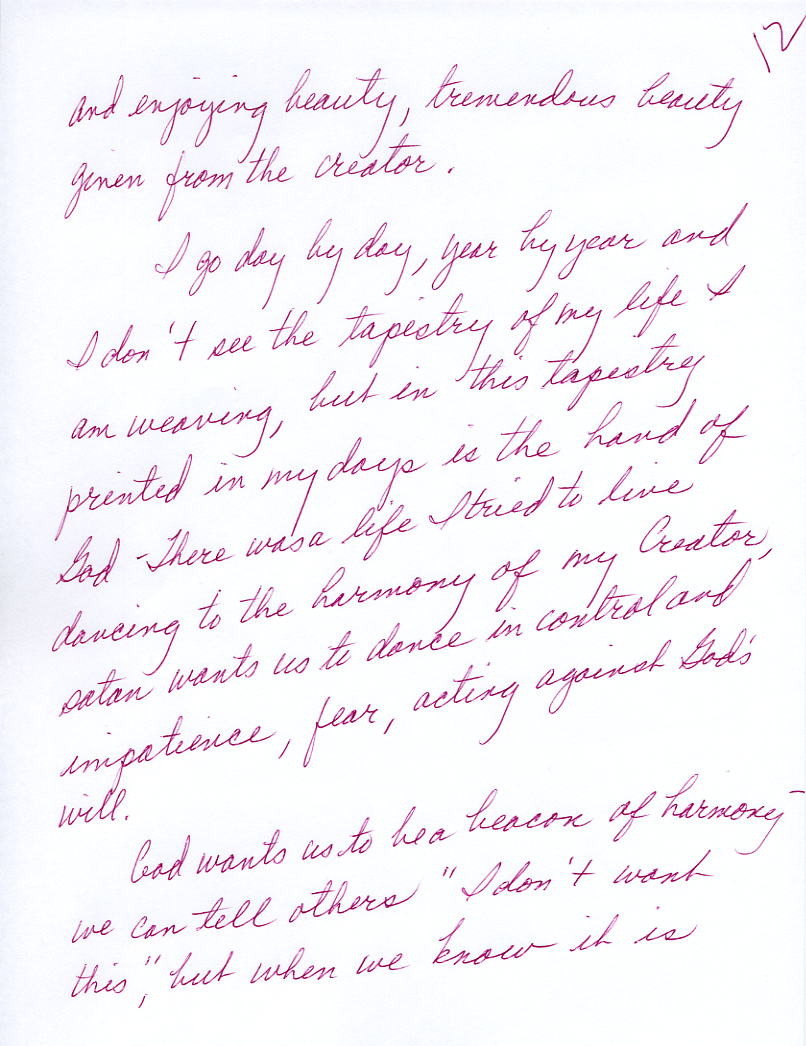 12
and enjoying beauty, tremendous beauty
given from the creator.
I go day by day, year by year and
I don't see the tapestry of my life I
am weaving, but in this tapestry
printed in my days is the hand of
God - There was a life I tried to live
dancing to the harmony of my Creator,
satan wants us to dance in control and
impatience, fear, acting against God's
will.
God wants us to be a beacon of harmony -
we can tell others "I don't want
this", but when we know it is